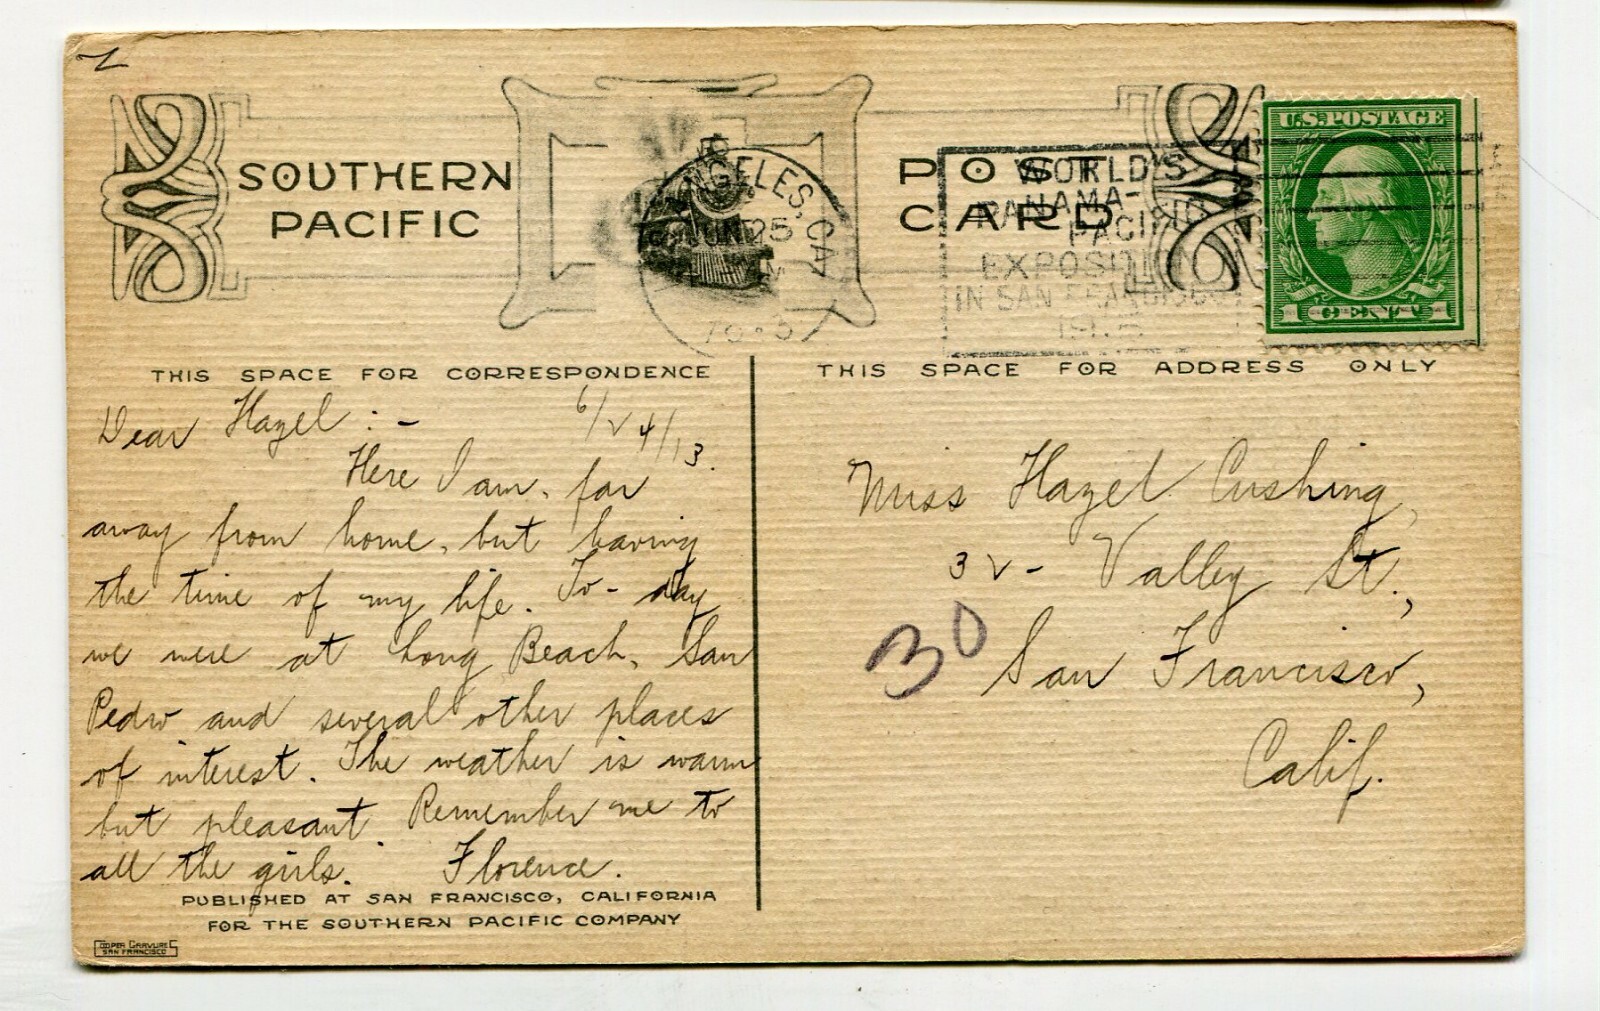 SOUTHERN
PACIFIC
POST
CARD
NGELES, CA
JUN 25
WORLD'S
PANAMA-
PACIFIC
EXPOSITION
IN SAN FRANCISCO
U.S. POSTAGE
1 CENT 1
THIS SPACE FOR CORRESPONDENCE
THIS SPACE FOR ADDRESS ONLY
6/24/13.
Dear Hazel:-
Here I am, far
away from home, but having
the time of my life. To-day
we were at Long Beach, San
Pedro and several other places
of interest. The weather is warm
but pleasant. Remember me to
all the girls. Florence.
Miss Hazel Cushing,
32- Valley St.,
30
San Francisco,
Calif.
PUBLISHED AT SAN FRANCISCO, CALIFORNIA
FOR THE SOUTHERN PACIFIC COMPANY
COOPER GRAVURES
SAN FRANCISCO